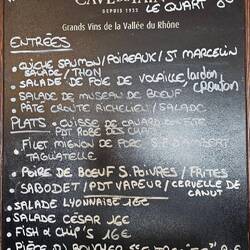 CAVE DE TAIN
DEPUIS 1933
LE QUART
Grands Vins de la Vallée du Rhône
ENTRÉES
• QUICHE SAUMON/POIREAUX/ST MARCELIN
SALADE / THON
• SALADE DE FOIE DE VOLAILLE, lardon, CROUTON
• SALADE DE MUSEAU DE BOEUF
• PÂTÉ CROUTE RICHELIEU/SALADE
PLATS • CUISSE DE CANARD
PDT ROBE DES CHAMPS
• FILET MIGNON DE PORC
TAGLIATELLE
• POIRE DE BOEUF S.POIVRES / FRITES
• SABODET / PDT VAPEUR / CERVELLE DE CANUT
• SALADE LYONNAISE 16€
• SALADE CÉSAR 16€
• FISH & CHIP'S 16€
• PIÈCE DU BOUCHER